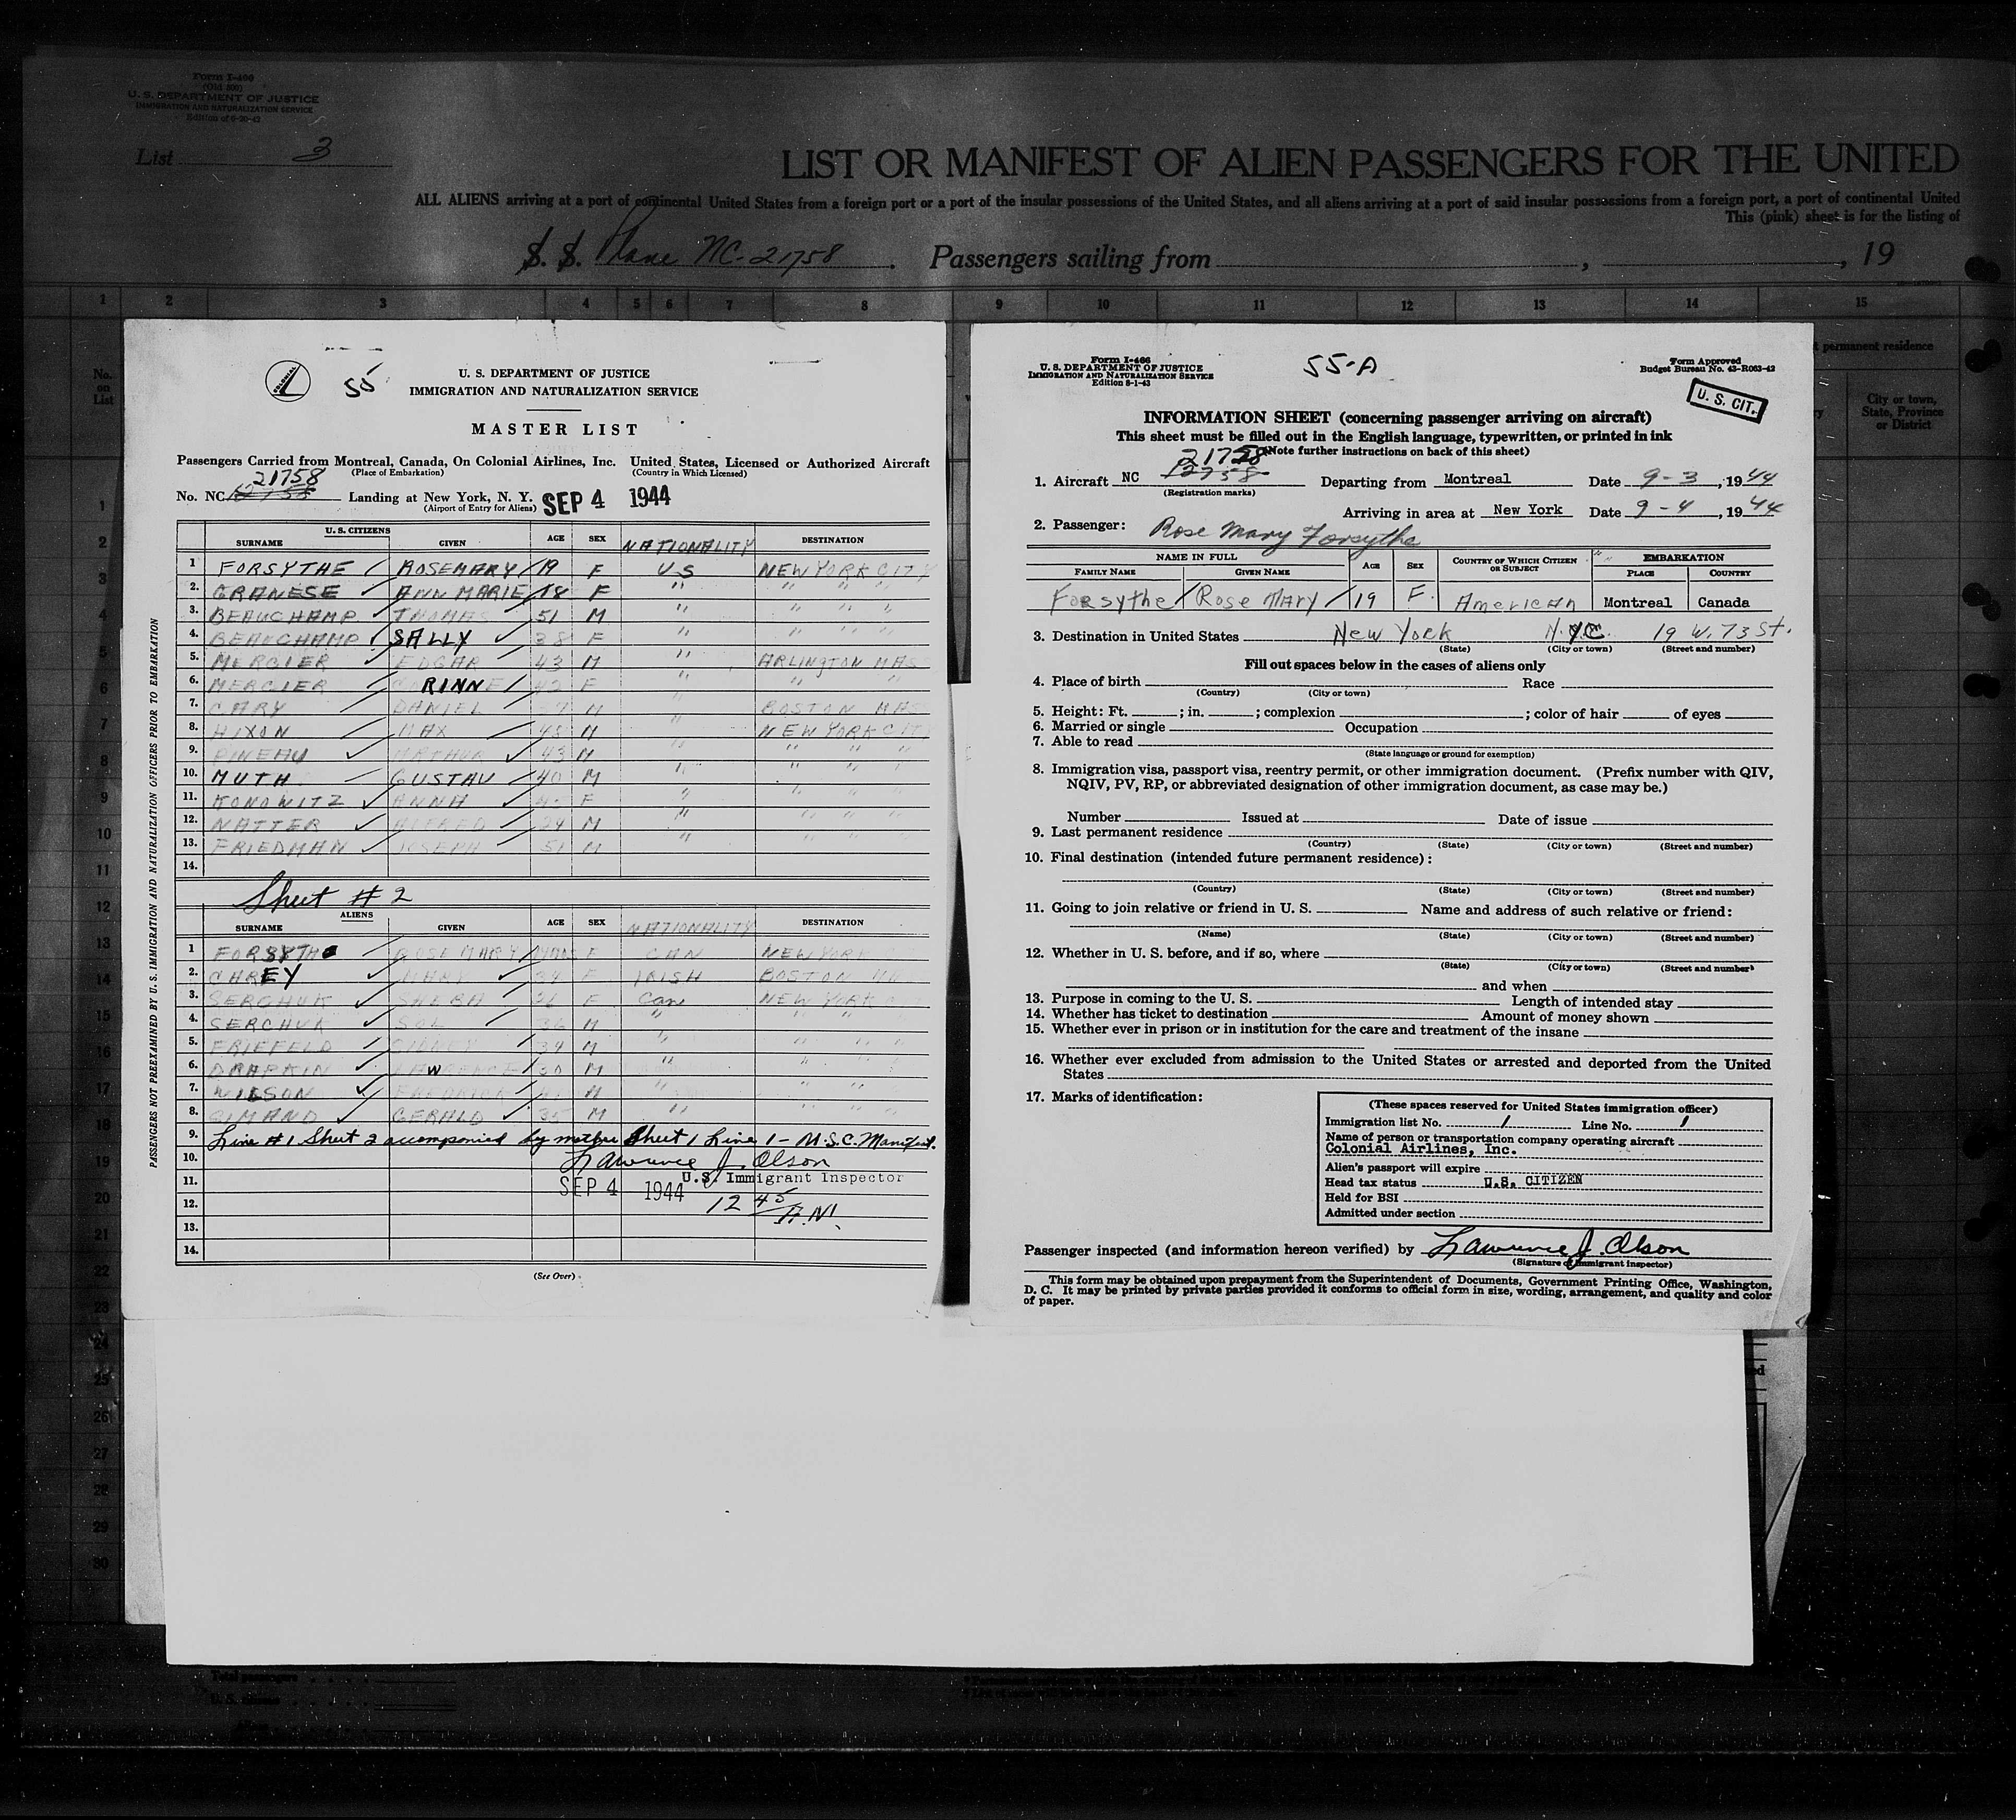 Form I-466
(Old 500)
U. S. DEPARTMENT OF JUSTICE
IMMIGRATION AND NATURALIZATION SERVICE
List 3
LIST OR MANIFEST OF ALIEN PASSENGERS FOR THE UNITED
ALL ALIENS arriving at a port of continental United States from a foreign port or a port of the insular possessions of the United States, and all aliens arriving at a port of said insular possessions from a foreign port, a port of continental United
This (pink) sheet is for the listing of
S. S. Plane NC-21758 . Passengers sailing from , , 19
1 2 3 4 5 6 7 8 9 10 11 12 13 14 15
No. on List
permanent residence
City or town, State, Province or District
1
2
3
4
5
6
7
8
9
10
11
12
13
14
15
16
17
18
19
20
21
22
23
24
25
26
27
28
29
30
COLONIAL
55
U. S. DEPARTMENT OF JUSTICE
IMMIGRATION AND NATURALIZATION SERVICE
MASTER LIST
Passengers Carried from Montreal, Canada, On Colonial Airlines, Inc. United States, Licensed or Authorized Aircraft
(Place of Embarkation) (Country in Which Licensed)
21758
No. NC 12758 Landing at New York, N. Y. SEP 4 1944
(Airport of Entry for Aliens)
PASSENGERS NOT PREEXAMINED BY U. S. IMMIGRATION AND NATURALIZATION OFFICERS PRIOR TO EMBARKATION
U. S. CITIZENS
SURNAME GIVEN AGE SEX NATIONALITY DESTINATION
1 FORSYTHE ROSEMARY 19 F US NEW YORK CITY
2. GRANESE ANN MARIE 18 F " " " "
3. BEAUCHAMP THOMAS 51 M " " " "
4. BEAUCHAMP SALLY 38 F " " " "
5. MERCIER EDGAR 43 M " ARLINGTON MASS
6. MERCIER CORINNE 42 F " " "
7. CARY DANIEL M " BOSTON MAS
8. HIXON MAX 48 M " NEW YORK CITY
9. PINEAU ARTHUR 43 M " " " "
10. MUTH GUSTAV 40 M " " " "
11. KONOWITZ ANNA F " " " "
12. NATTER ALFRED M " " " "
13. FRIEDMAN JOSEPH 51 M " " " "
14.
Sheet # 2
ALIENS
SURNAME GIVEN AGE SEX NATIONALITY DESTINATION
1 FORSYTHE ROSE MARY F CAN NEW YORK
2. CAREY MARY 34 F IRISH BOSTON
3. SERCHUK F Can NEW YORK
4. SERCHUK SOL 36 M " " " "
5. FRIEFELD SIDNEY 34 M " " " "
6. DRAPKIN LAWRENCE 30 M " " " "
7. WILSON M " " " "
8. SIMAND GERALD 35 M " " " "
9. Line #1 Sheet 2 accompanied by mother Sheet 1 Line 1 - U.S.C. Manifest.
10. Lawrence J. Olson
11. SEP 4 1944 U.S. Immigrant Inspector
12. 12 45 A.M.
13.
14.
(See Over)
Form I-466
U. S. DEPARTMENT OF JUSTICE
IMMIGRATION AND NATURALIZATION SERVICE
Edition 8-1-43
55-A
Form Approved
Budget Bureau No. 43-R063-42
U. S. CIT.
INFORMATION SHEET (concerning passenger arriving on aircraft)
This sheet must be filled out in the English language, typewritten, or printed in ink
(Note further instructions on back of this sheet)
21758
1. Aircraft NC 12758 Departing from Montreal Date 9-3, 1944
(Registration marks)
Arriving in area at New York Date 9-4, 1944
2. Passenger: Rose Mary Forsythe
NAME IN FULL AGE SEX COUNTRY OF WHICH CITIZEN OR SUBJECT EMBARKATION
FAMILY NAME GIVEN NAME PLACE COUNTRY
Forsythe Rose Mary 19 F. American Montreal Canada
3. Destination in United States New York N.Y.C. 19 W. 73 St.
(State) (City or town) (Street and number)
Fill out spaces below in the cases of aliens only
4. Place of birth Race
(Country) (City or town)
5. Height: Ft. ; in. ; complexion ; color of hair of eyes
6. Married or single Occupation
7. Able to read
(State language or ground for exemption)
8. Immigration visa, passport visa, reentry permit, or other immigration document. (Prefix number with QIV,
NQIV, PV, RP, or abbreviated designation of other immigration document, as case may be.)
Number Issued at Date of issue
9. Last permanent residence
(Country) (State) (City or town) (Street and number)
10. Final destination (intended future permanent residence):
(Country) (State) (City or town) (Street and number)
11. Going to join relative or friend in U. S. Name and address of such relative or friend:
(Name) (State) (City or town) (Street and number)
12. Whether in U. S. before, and if so, where
(State) (City or town) (Street and number)
and when
13. Purpose in coming to the U. S. Length of intended stay
14. Whether has ticket to destination Amount of money shown
15. Whether ever in prison or in institution for the care and treatment of the insane
16. Whether ever excluded from admission to the United States or arrested and deported from the United
States
17. Marks of identification:
(These spaces reserved for United States immigration officer)
Immigration list No. 1 Line No. 1
Name of person or transportation company operating aircraft
Colonial Airlines, Inc.
Alien's passport will expire
Head tax status U.S. CITIZEN
Held for BSI
Admitted under section
Passenger inspected (and information hereon verified) by Lawrence J. Olson
(Signature of Immigrant inspector)
This form may be obtained upon prepayment from the Superintendent of Documents, Government Printing Office, Washington,
D. C. It may be printed by private parties provided it conforms to official form in size, wording, arrangement, and quality and color
of paper.
Total passengers